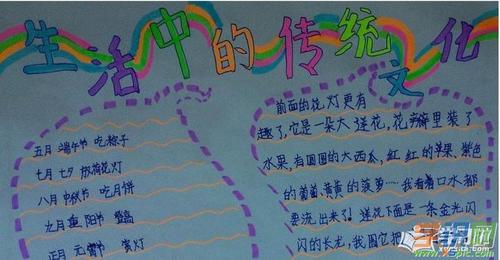 生活中的传统文化
五月 端午节 吃粽子
七月 七夕 放荷花灯
八月 中秋节 吃月饼
九月 重阳节 登高
正月 元宵节 赏灯
前面的花灯更有
趣了,它是一朵大莲花,花瓣里装了
水果,有圆圆的大西瓜,红红的苹果、紫色
的葡萄、黄黄的菠萝……我看着口水都
要流出来了!莲花下面是一条金光闪
闪的长龙,我围它把